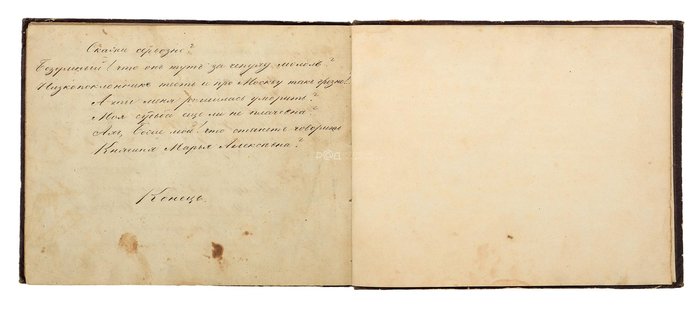 Скажи серьозно?
Безумный! что онъ тутъ за чепуху мололъ?
Низкопоклонникъ тесть и про Москву такъ грозно!
А ты меня рѣшилась уморить?
Моя судьба еще ли не плачевна?
Ахъ, Боже мой! что станетъ говорить
Княгиня Марья Алексѣвна?
Конецъ.